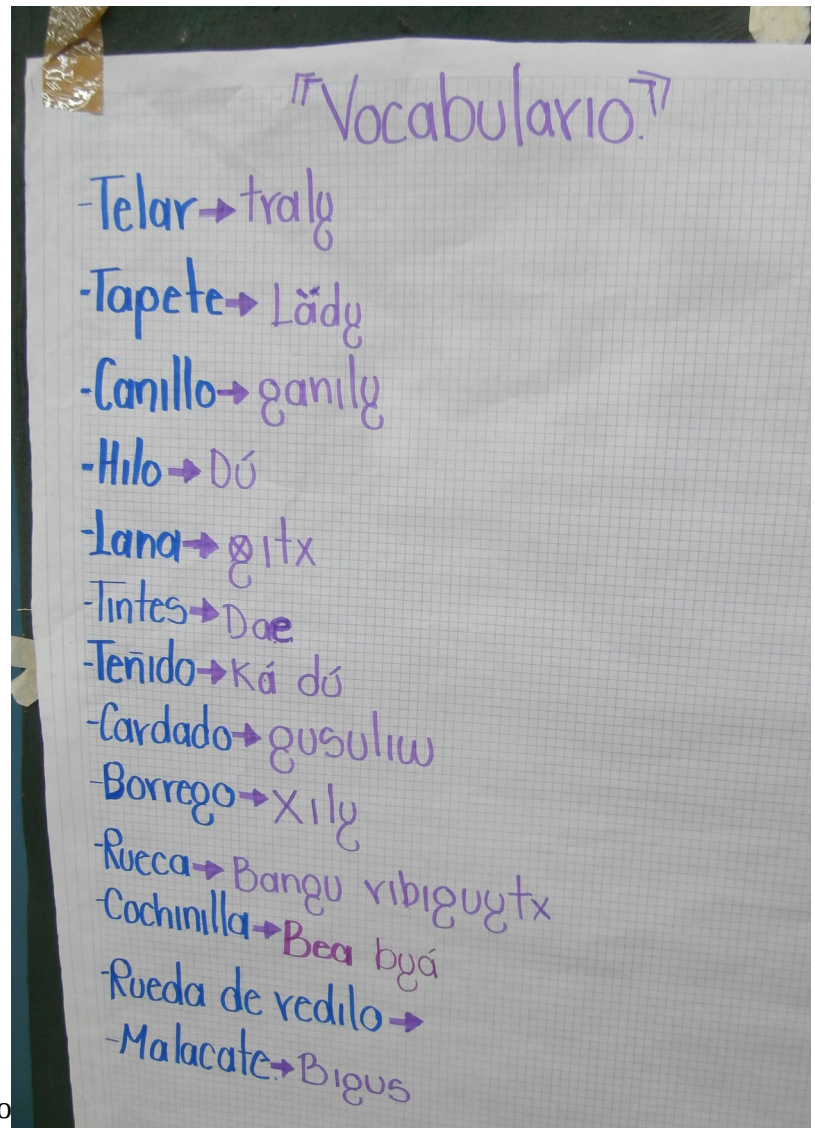 "Vocabulario."
-Telar→traly
-Tapete→Lädy
-Canillo→ganily
-Hilo→Dú
-Lana→gitx
-Tintes→Dae
-Teñido→Ká dú
-Cardado→gusuliw
-Borrego→Xily
-Rueca→Bangu ribiguytx
-Cochinilla→Bea byá
-Rueda de redilo→
-Malacate.→Bigus